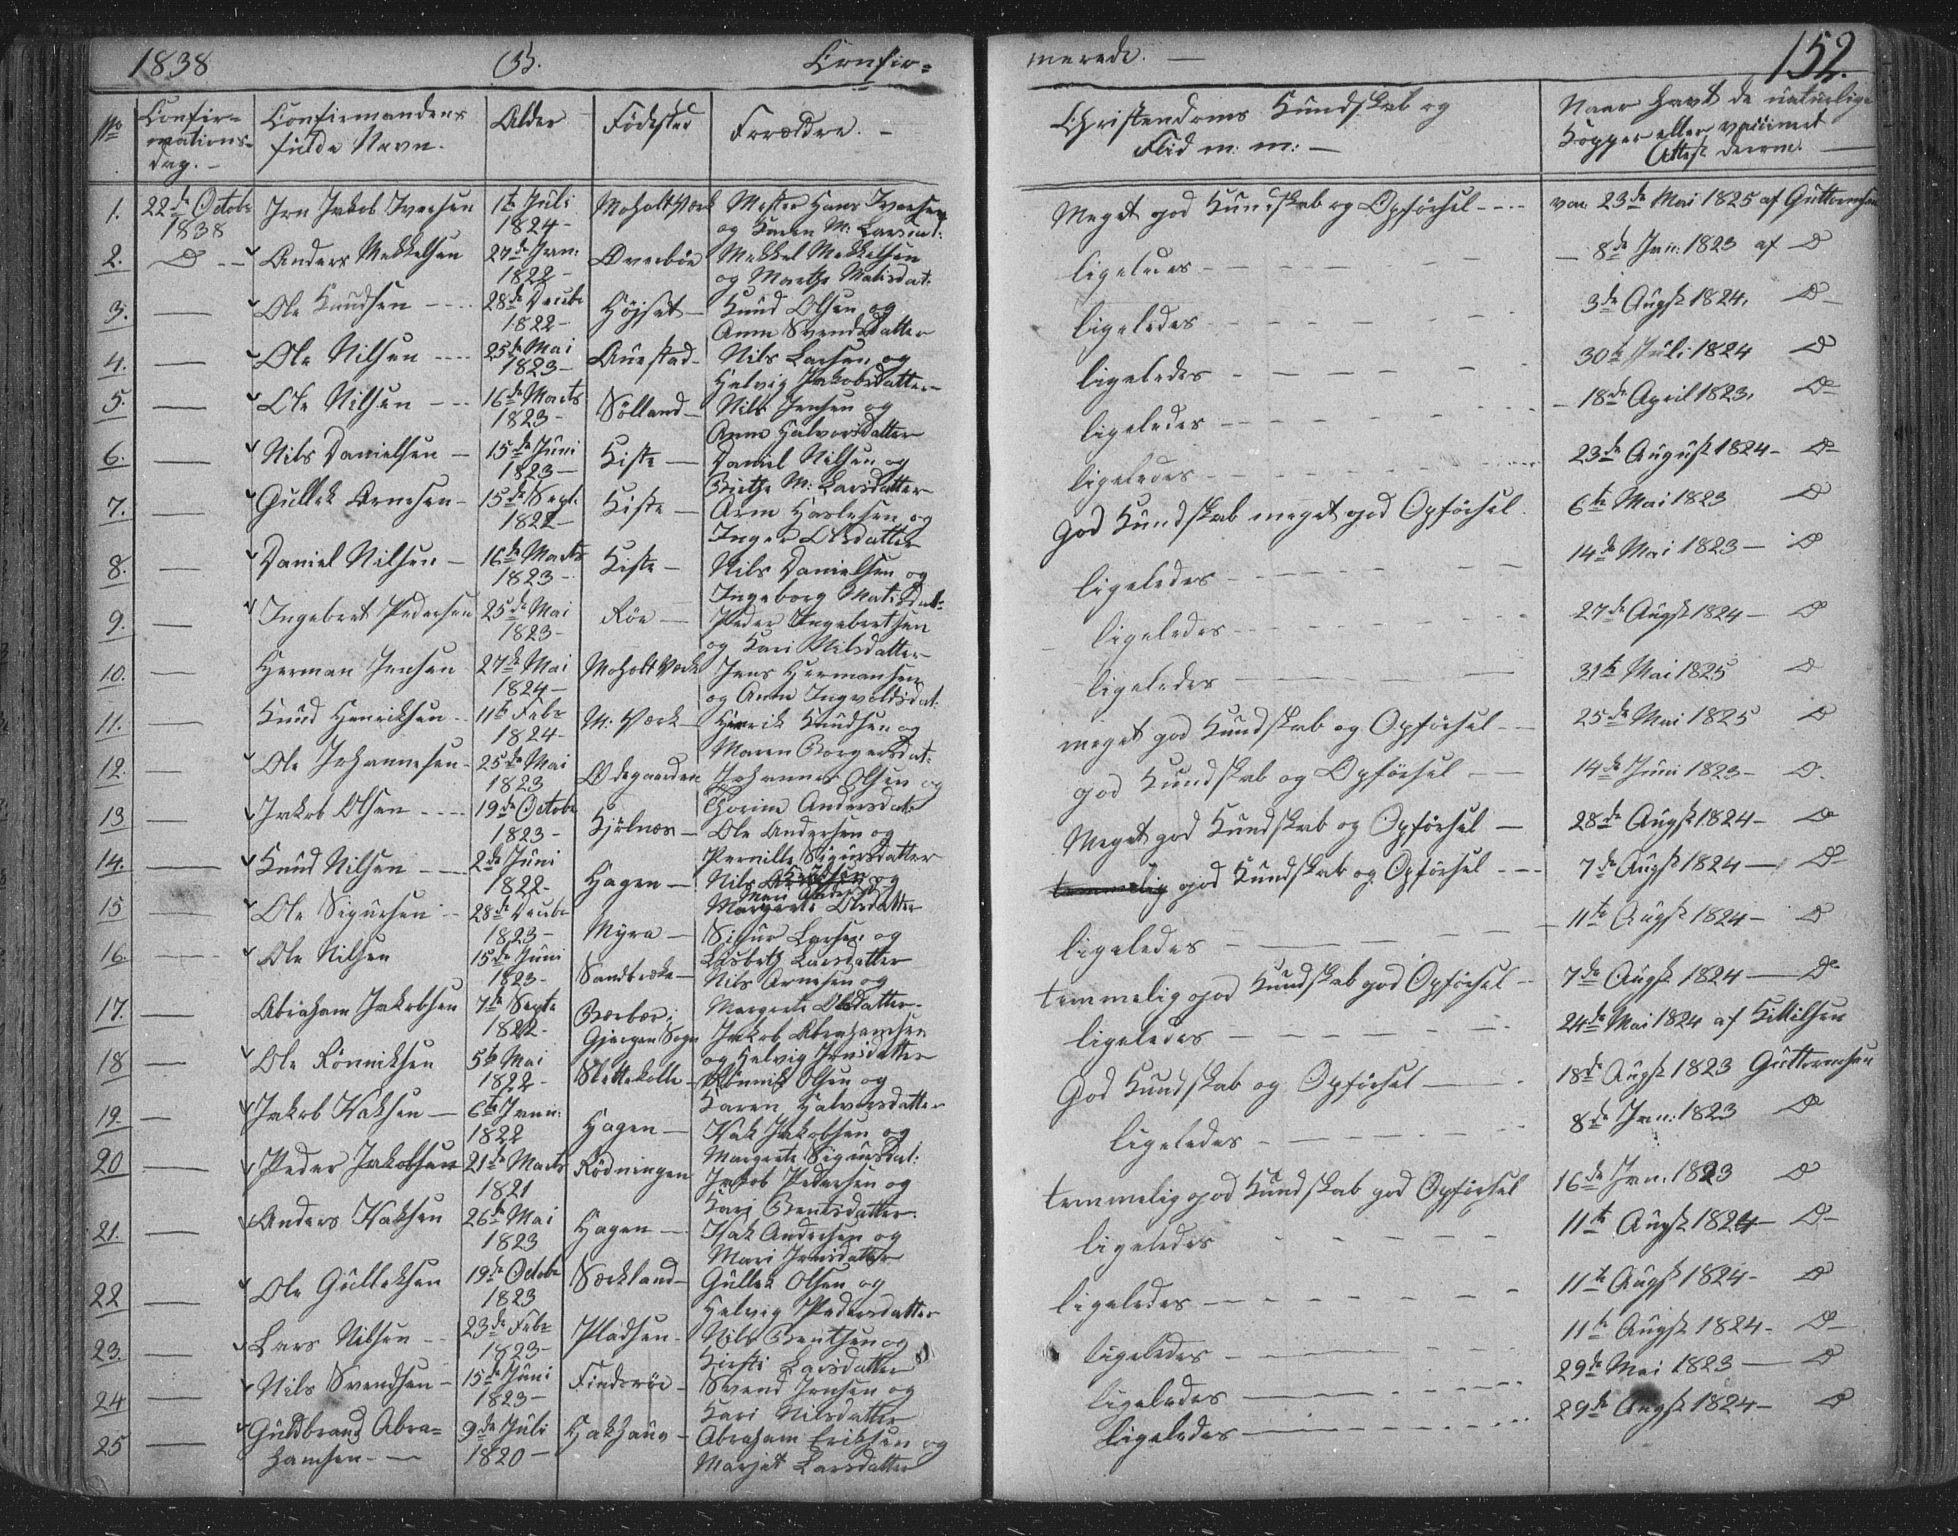 1838 (3). Confir=
merede. — 152.
No Confir= mations= dag. — Confirmandens fulde Navn. Alder Födested Forældre. — Christendoms Kundskab og Flid m: m: — Naar havt de naturlige Kopper eller vaccineret Attest derom.
1. 22de Octobr 1838 Jon Jakob Iversen 1te Juli 1824 Moholt Værk Mester Hans Iversen og Karen M: Larsdat: Meget god Kundskab og Opförsel vac. 23de Mai 1825 af Guttormsen
2. Do Anders Mekkelsen 27de Jan: 1822 Overböe Mekkel Mekkelsen og Marthe Matisdat: ligeledes 8de Jan: 1823 af Do
3. — Ole Knudsen 28de Decbr 1822 Höjset Knud Olsen og Anne Svendsdatter ligeledes 3de Augst 1824. Do
4. — Ole Nilsen 25de Mai 1823 Auestad Nils Larsen og Helvig Jakobsdatter ligeledes 30te Juli 1824 Do
5 — Ole Nilsen 16de Marts 1823 Sölland Nils Jensen og Anne Halvorsdatter ligeledes 18de April 1823. Do
6. — Nils Danielsen 15de Juni 1823 Kiste Daniel Nilsen og Birthe M: Larsdatter ligeledes 23de August 1824 Do
7. — Gullek Arnesen 15de Sept. 1822 Kiste Arne Haslesen og Inger Olsdatter God Kundskab meget god Opförsel 6te Mai 1823 Do
8. — Daniel Nilsen 16de Marts 1823 Kiste Nils Danielsen og Ingeborg Matisdat: ligeledes 14de Mai 1823 Do
9. — Ingebret Pedersen 25de Mai 1823 Röe Peder Ingebretsen og Kari Nilsdatter ligeledes 27de Augst 1824 Do
10. — Herman Jensen 27de Mai 1824 Moholt Værk Jens Hermansen og Anne Ingvoldsdat: ligeledes 31te Mai 1825 Do
11. — Knud Henriksen 11te Febr 1824 M: Værk Henrik Knudsen og Maren Borgersdat: meget god Kundskab og Opförsel 25de Mai 1825 Do
12. — Ole Johannesen 25de Mai 1823 Ödegaarden Johannes Olsen og Thorine Andersdat: god Kundskab og Opförsel 14de Juni 1823 Do
13 — Jakob Olsen 19de Octobr 1823 Kjölnæs Ole Andersen og Pernille Sigursdatter Meget god Kundskab og Opförsel 28de Augst 1824 Do
14. — Knud Nilsen 2de Juni 1822 Hagen Nils Knudsen og Margrete Olsdatter temmelig god Kundskab og Opförsel 7de Augst 1824 Do
15 Ole Sigursen 28de Decbr 1823 Myra Sigur Larsen og Lisbeth Larsdatter ligeledes 11te Augst 1824 Do
16. — Ole Nilsen 15de Juni 1823 Sandbække Nils Arnesen og Margrete Olsdatter temmelig god Kundskab god Opförsel 7de Augst 1824 Do
17. — Abraham Jakobsen 7de Septr 1822 Gjerpen Sogn Jakob Abrahamsen og Helvig Jensdatter ligeledes 24de Mai 1824 af Kittilsen
18 — Ole Rönniksen 5te Mai 1822 Slettekolle Rönnik Olsen og Karen Halvorsdatter God Kundskab og Opförsel 18de Augst 1823 Guttormsen
19. — Jakob Isaksen 6te Jan: 1822 Hagen Isak Jakobsen og Margrete Sigursdat: ligeledes 8de Jan: 1823 Do
20 — Peder Jakobsen 21de Marts 1821 Rödningen Jakob Pedersen og Kari Bentsdatter. temmelig god Kundskab god Opförsel 16de Jan. 1823 Do
21. — Anders Isaksen 26de Mai 1823 Hagen Isak Andersen og Mari Jensdatter ligeledes 11te Augst 1824 Do
22 — Ole Gulleksen 19de Octobr 1823 Sörkland Gullek Olsen og Helvig Pedersdatter ligeledes 11te Augst 1824 Do
23. — Lars Nilsen 23de Febr 1823 Pladsen Nils Bentsen og Kirsti Larsdatter ligeledes 11te Augst 1824 Do
24 — Nils Svendsen 15de Juni 1823 Finderöe Svend Jensen og Kari Nilsdatter ligeledes 29de Mai 1823 Do
25 — Guldbrand Abra= hamsen 9de Juli 1820 Hakhaug Abraham Eriksen og Marjet Larsdatter ligeledes 29de Augst 1824 Do